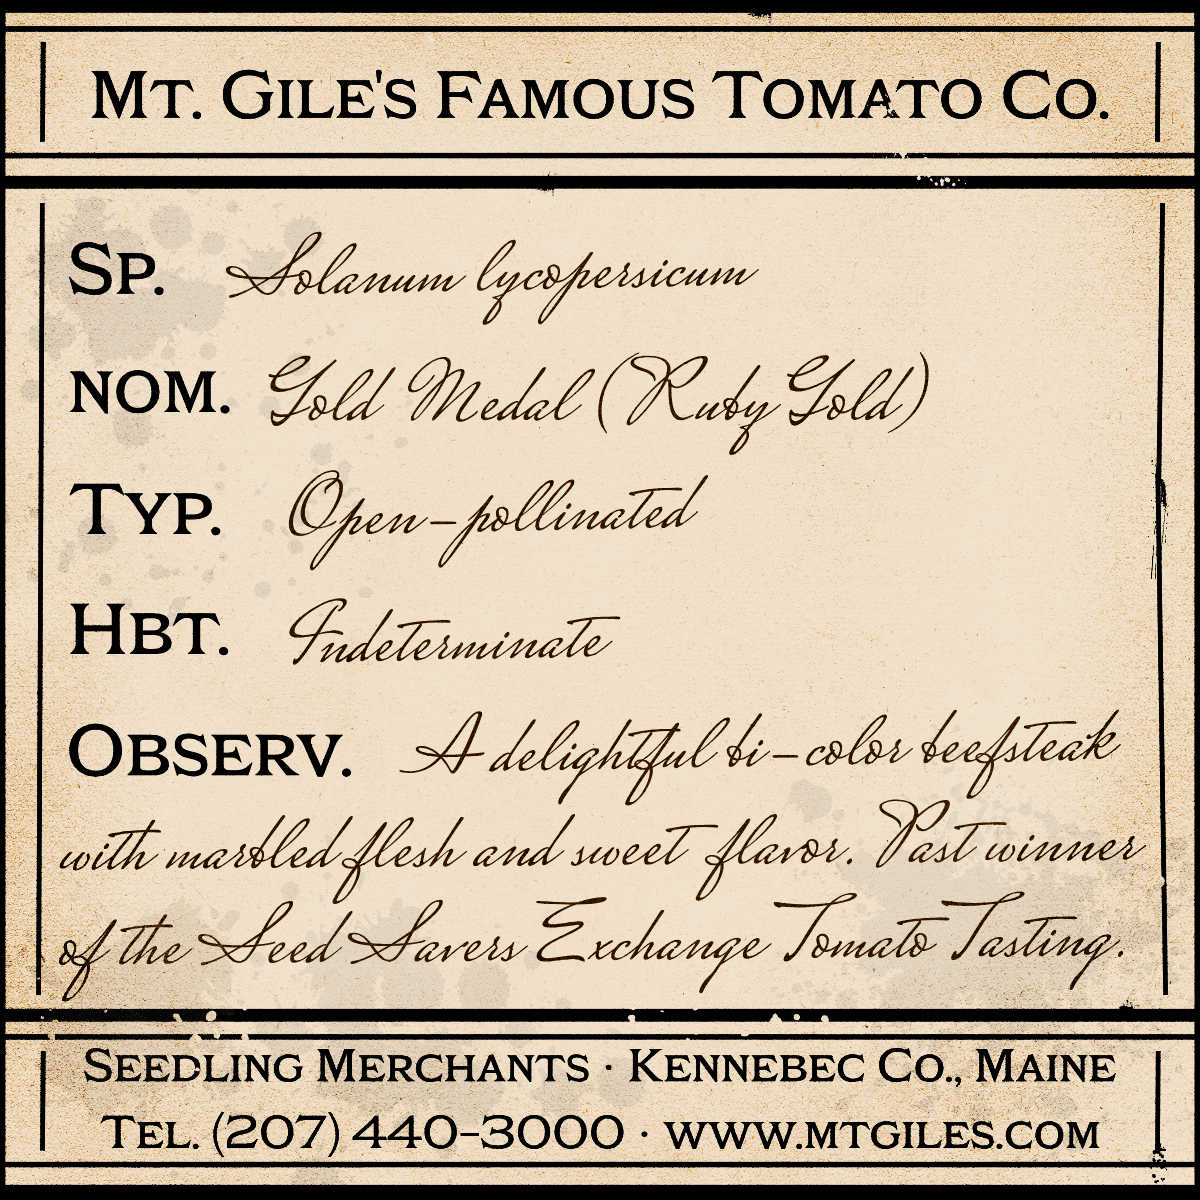 Mt. Gile's Famous Tomato Co.
Sp. Solanum lycopersicum
nom. Gold Medal (Ruby Gold)
Typ. Open-pollinated
Hbt. Indeterminate
Observ. A delightful bi-color beefsteak
with marbled flesh and sweet flavor. Past winner
of the Seed Savers Exchange Tomato Tasting.
Seedling Merchants · Kennebec Co., Maine
Tel. (207) 440-3000 · www.mtgiles.com